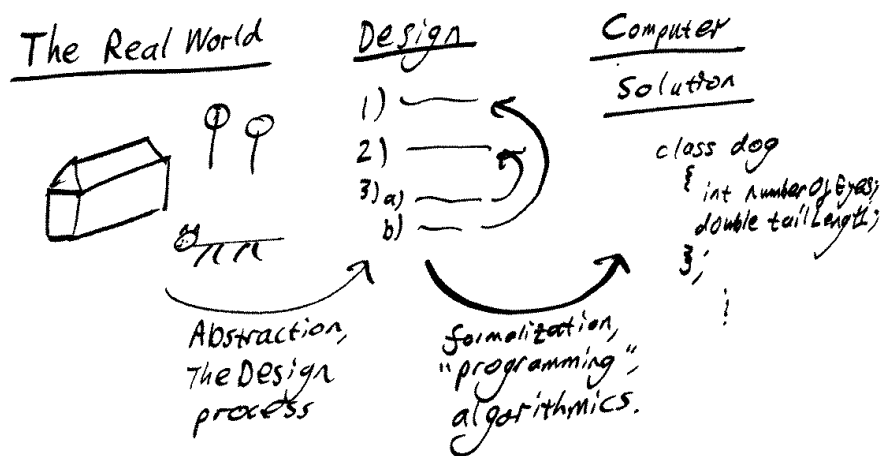 The Real World
Design
Computer
Solution
1)
2)
3) a)
b)
class dog
{ int numberOfEyes;
double tailLength;
};
Abstraction,
The Design
process
formalization,
"programming",
algorithmics.